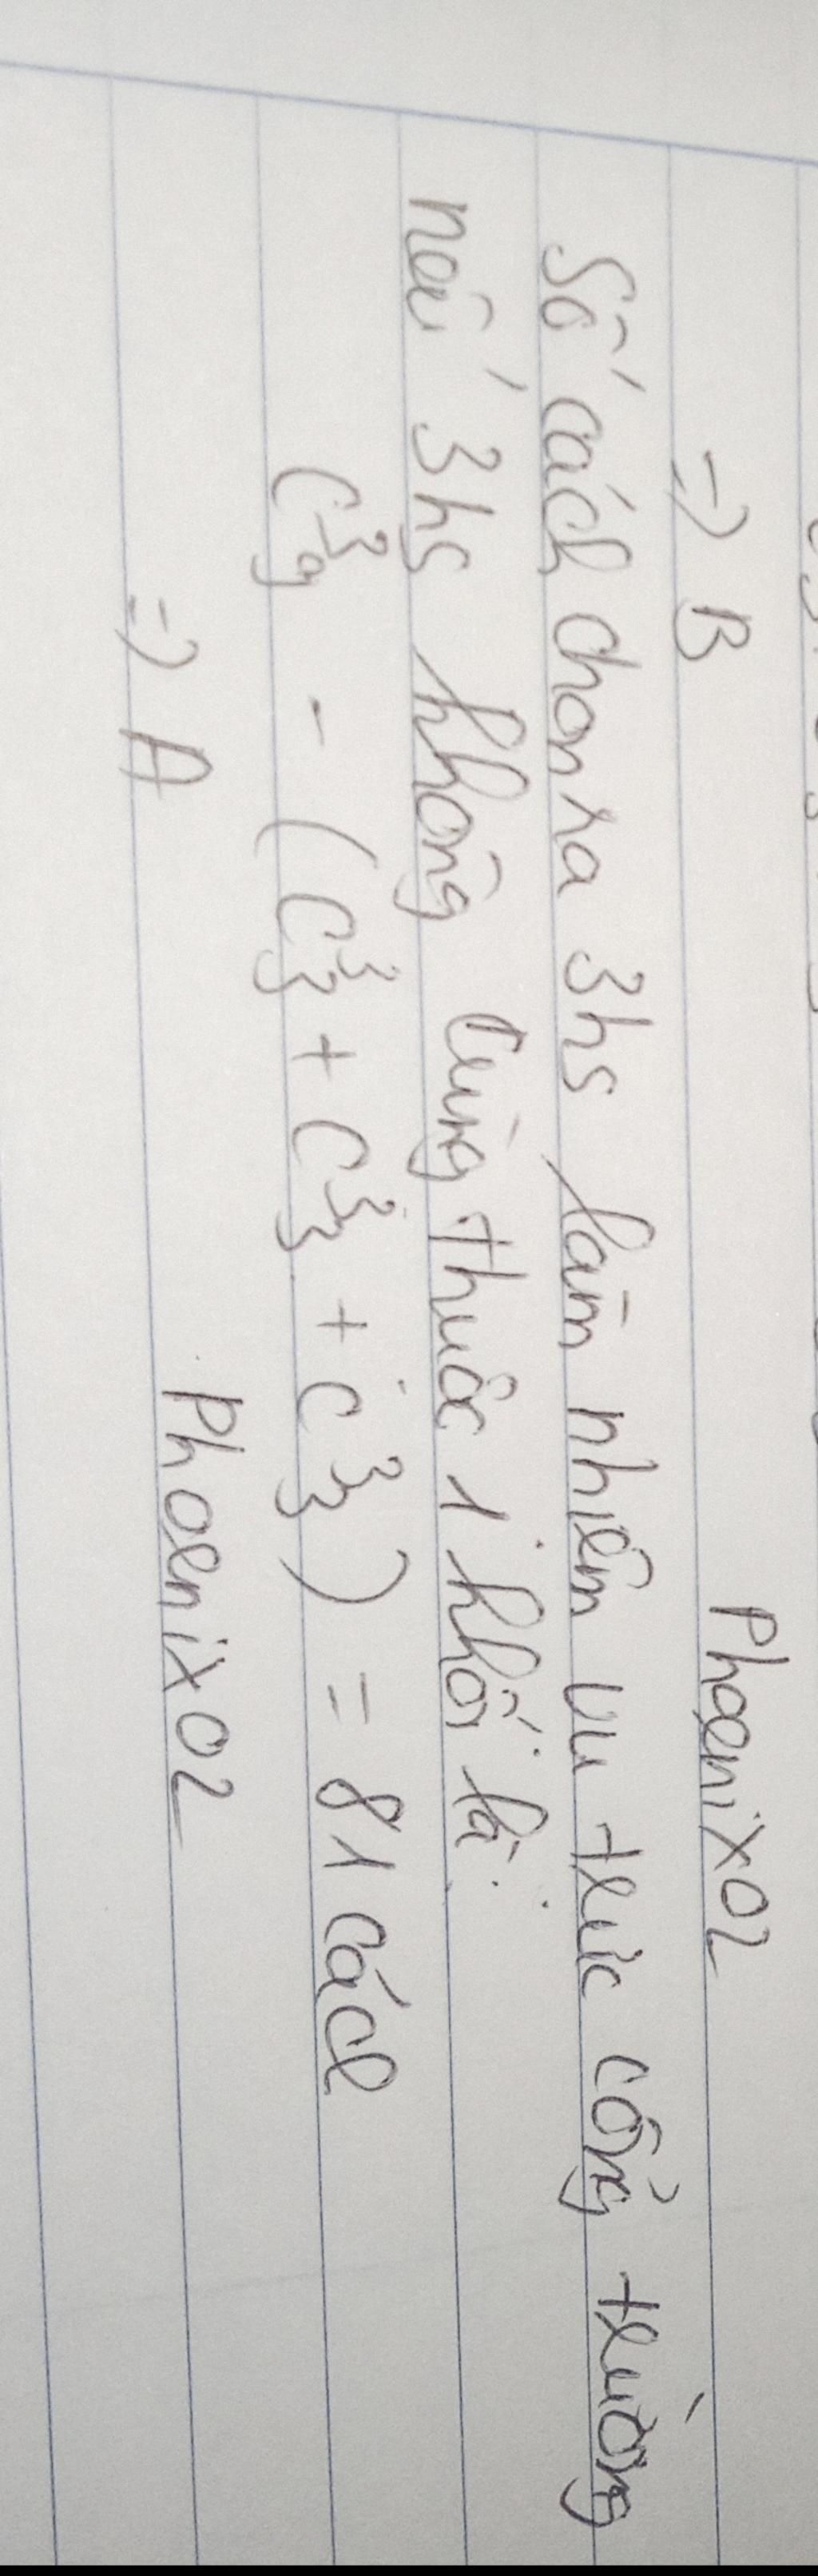 => B
Phoenix02
Số cách chọn ra 3hs làm nhiệm vụ trực cổng trường
nếu 3hs không cùng thuộc 1 khối là:
C³₉ - (C³₃ + C³₃ + C³₃) = 81 cách
=> A
Phoenix02